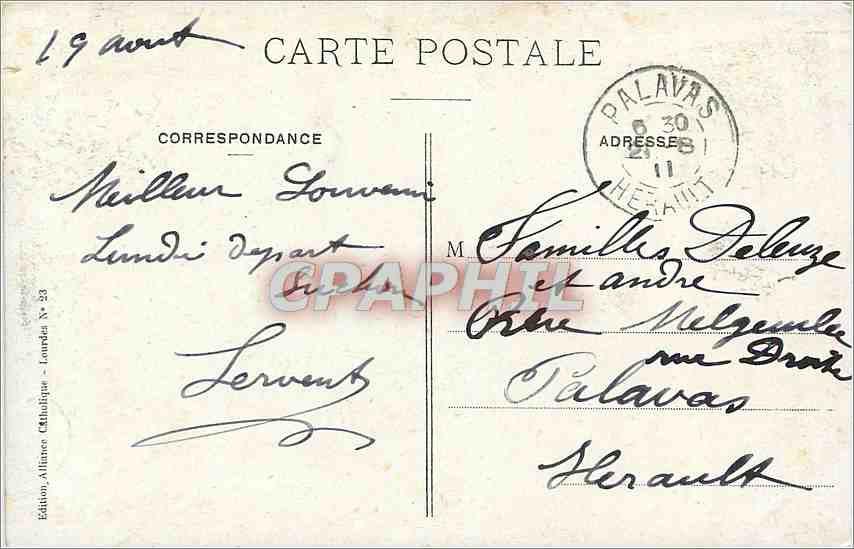 19 aout
CARTE POSTALE
PALAVAS
6 30
21 -8
11
HERAULT
CORRESPONDANCE
ADRESSE
Meilleur Souvenir
Lundi depart
Servent
M Familles Deleuze
et andre
rue Droite
Palavas
Herault
CPAPHIL
Edition Alliance Catholique - Lourdes No 23